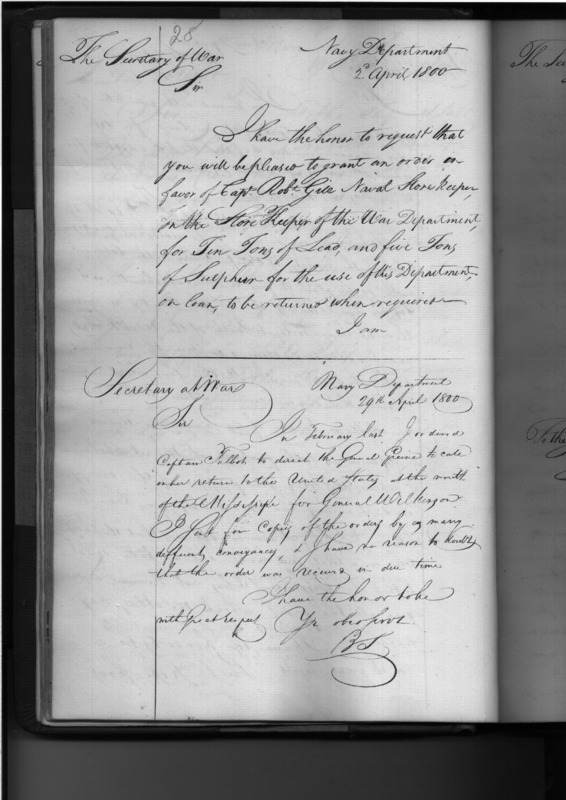 28
The Secretary of War
Navy Department
2d April 1800
Sir
I have the honor to request that
you will be pleased to grant an order in
favor of Capt. Robt. Gill Naval Store keeper,
on the Store Keeper of the War Department,
for Ten Tons of Lead, and five Tons
of Sulphur for the use of this Department,
on loan, to be returned when required
I am
Secretary at War
Navy Department
29th April 1800
Sir
In February last I ordered
Captain Talbot to direct the General Greene to call
on her return to the United States at the mouth
of the Missisippi for General Wilkinson.
I sent four Copies of the orders by as many
different conveyances, & I have no reason to doubt
that the order was received in due time
I have the honor to be
with great respect Yr obed servt
BS
The Se
To the